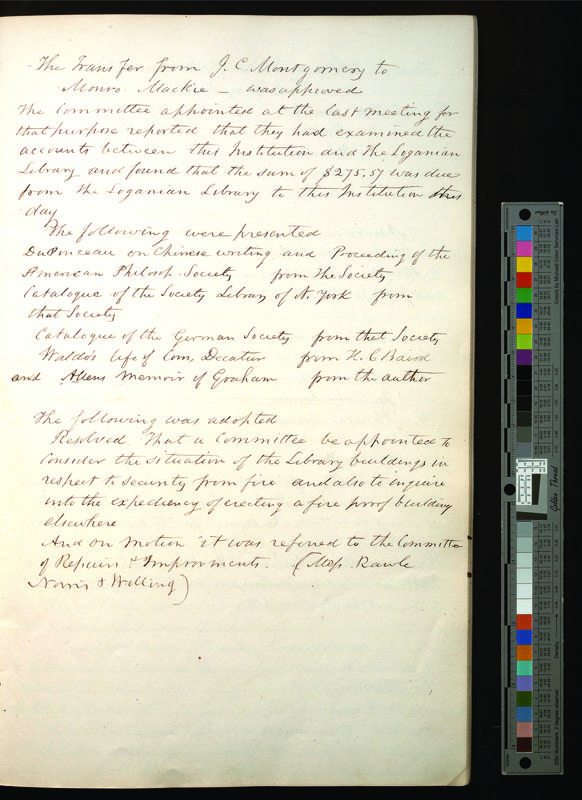 The Transfer from J. C. Montgomery to
Monro Mackie – was approved
The Committee appointed at the last meeting for
that purpose reported that they had examined the
accounts between this Institution and The Loganian
Library and found that the sum of $275.51 was due
from The Loganian Library to this Institution this
day
The following were presented
DuPonceau on Chinese writing and Proceeding of the
American Philosl. Society from The Society
Catalogue of the Society Library of N. York from
that Society
Catalogue of the German Society from that Society
Waldos life of Com. Decatur from H. C. Baird
and Allens Memoir of Graham from the author
The following was adopted
Resolved That a Committee be appointed to
Consider the situation of the Library buildings in
respect to security from fire and also to inquire
into the expediency of erecting a fire proof building
elsewhere
And on motion it was referred to the Committee
of Repairs & Improvments. (Mess. Rawle
Norris & Willing)
Golden Thread